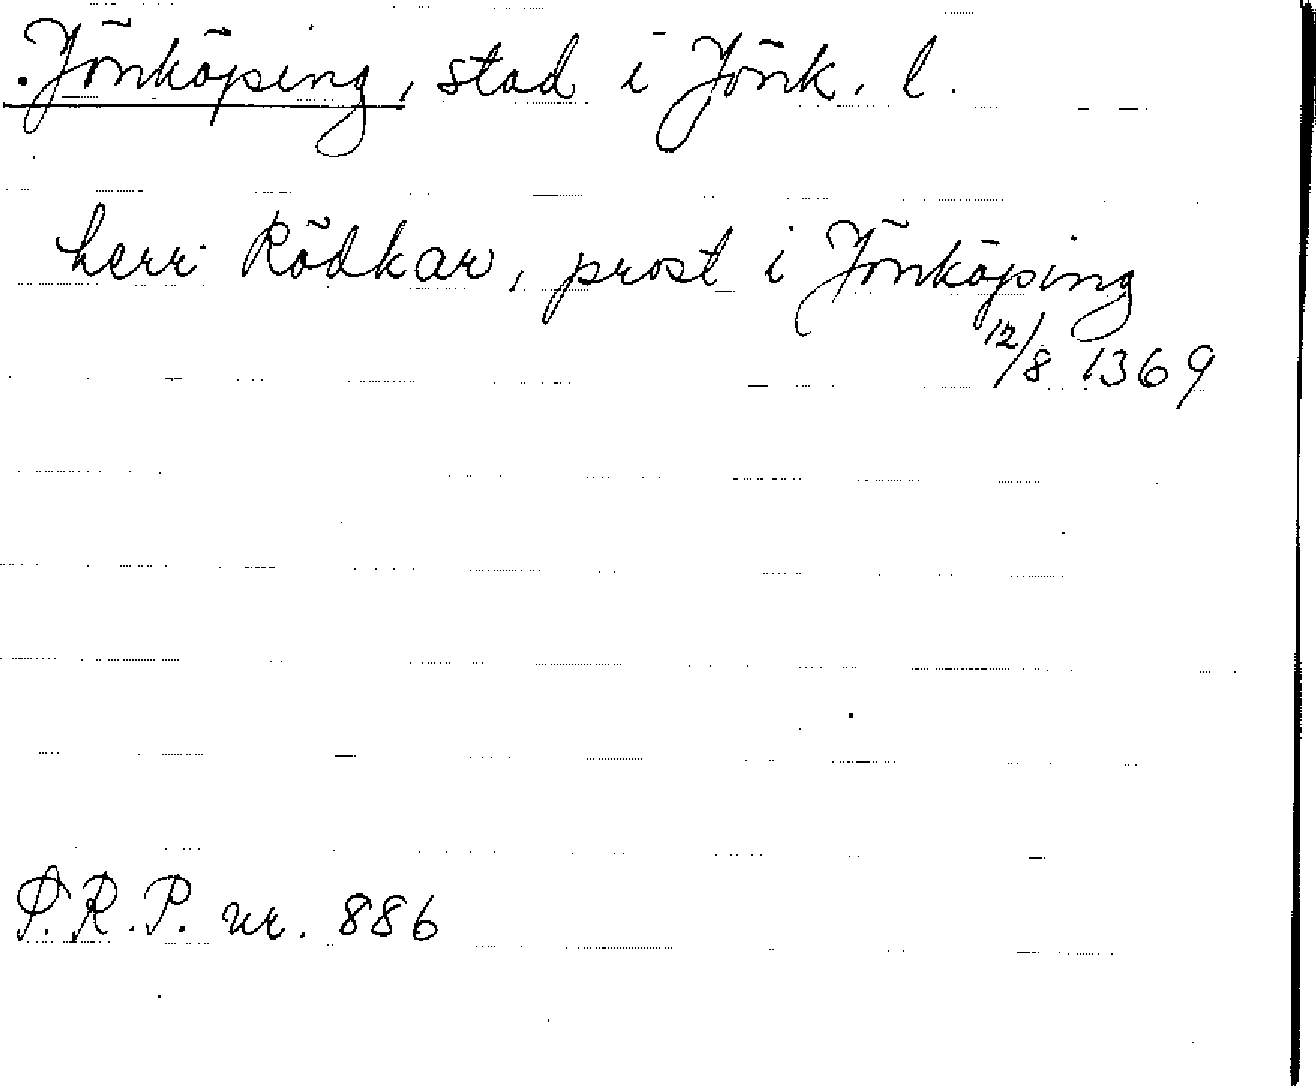 Jönköping, stad i Jönk. l.
herr Rödkar, prost i Jönköping
12/8 1369
P.R.P. nr. 886